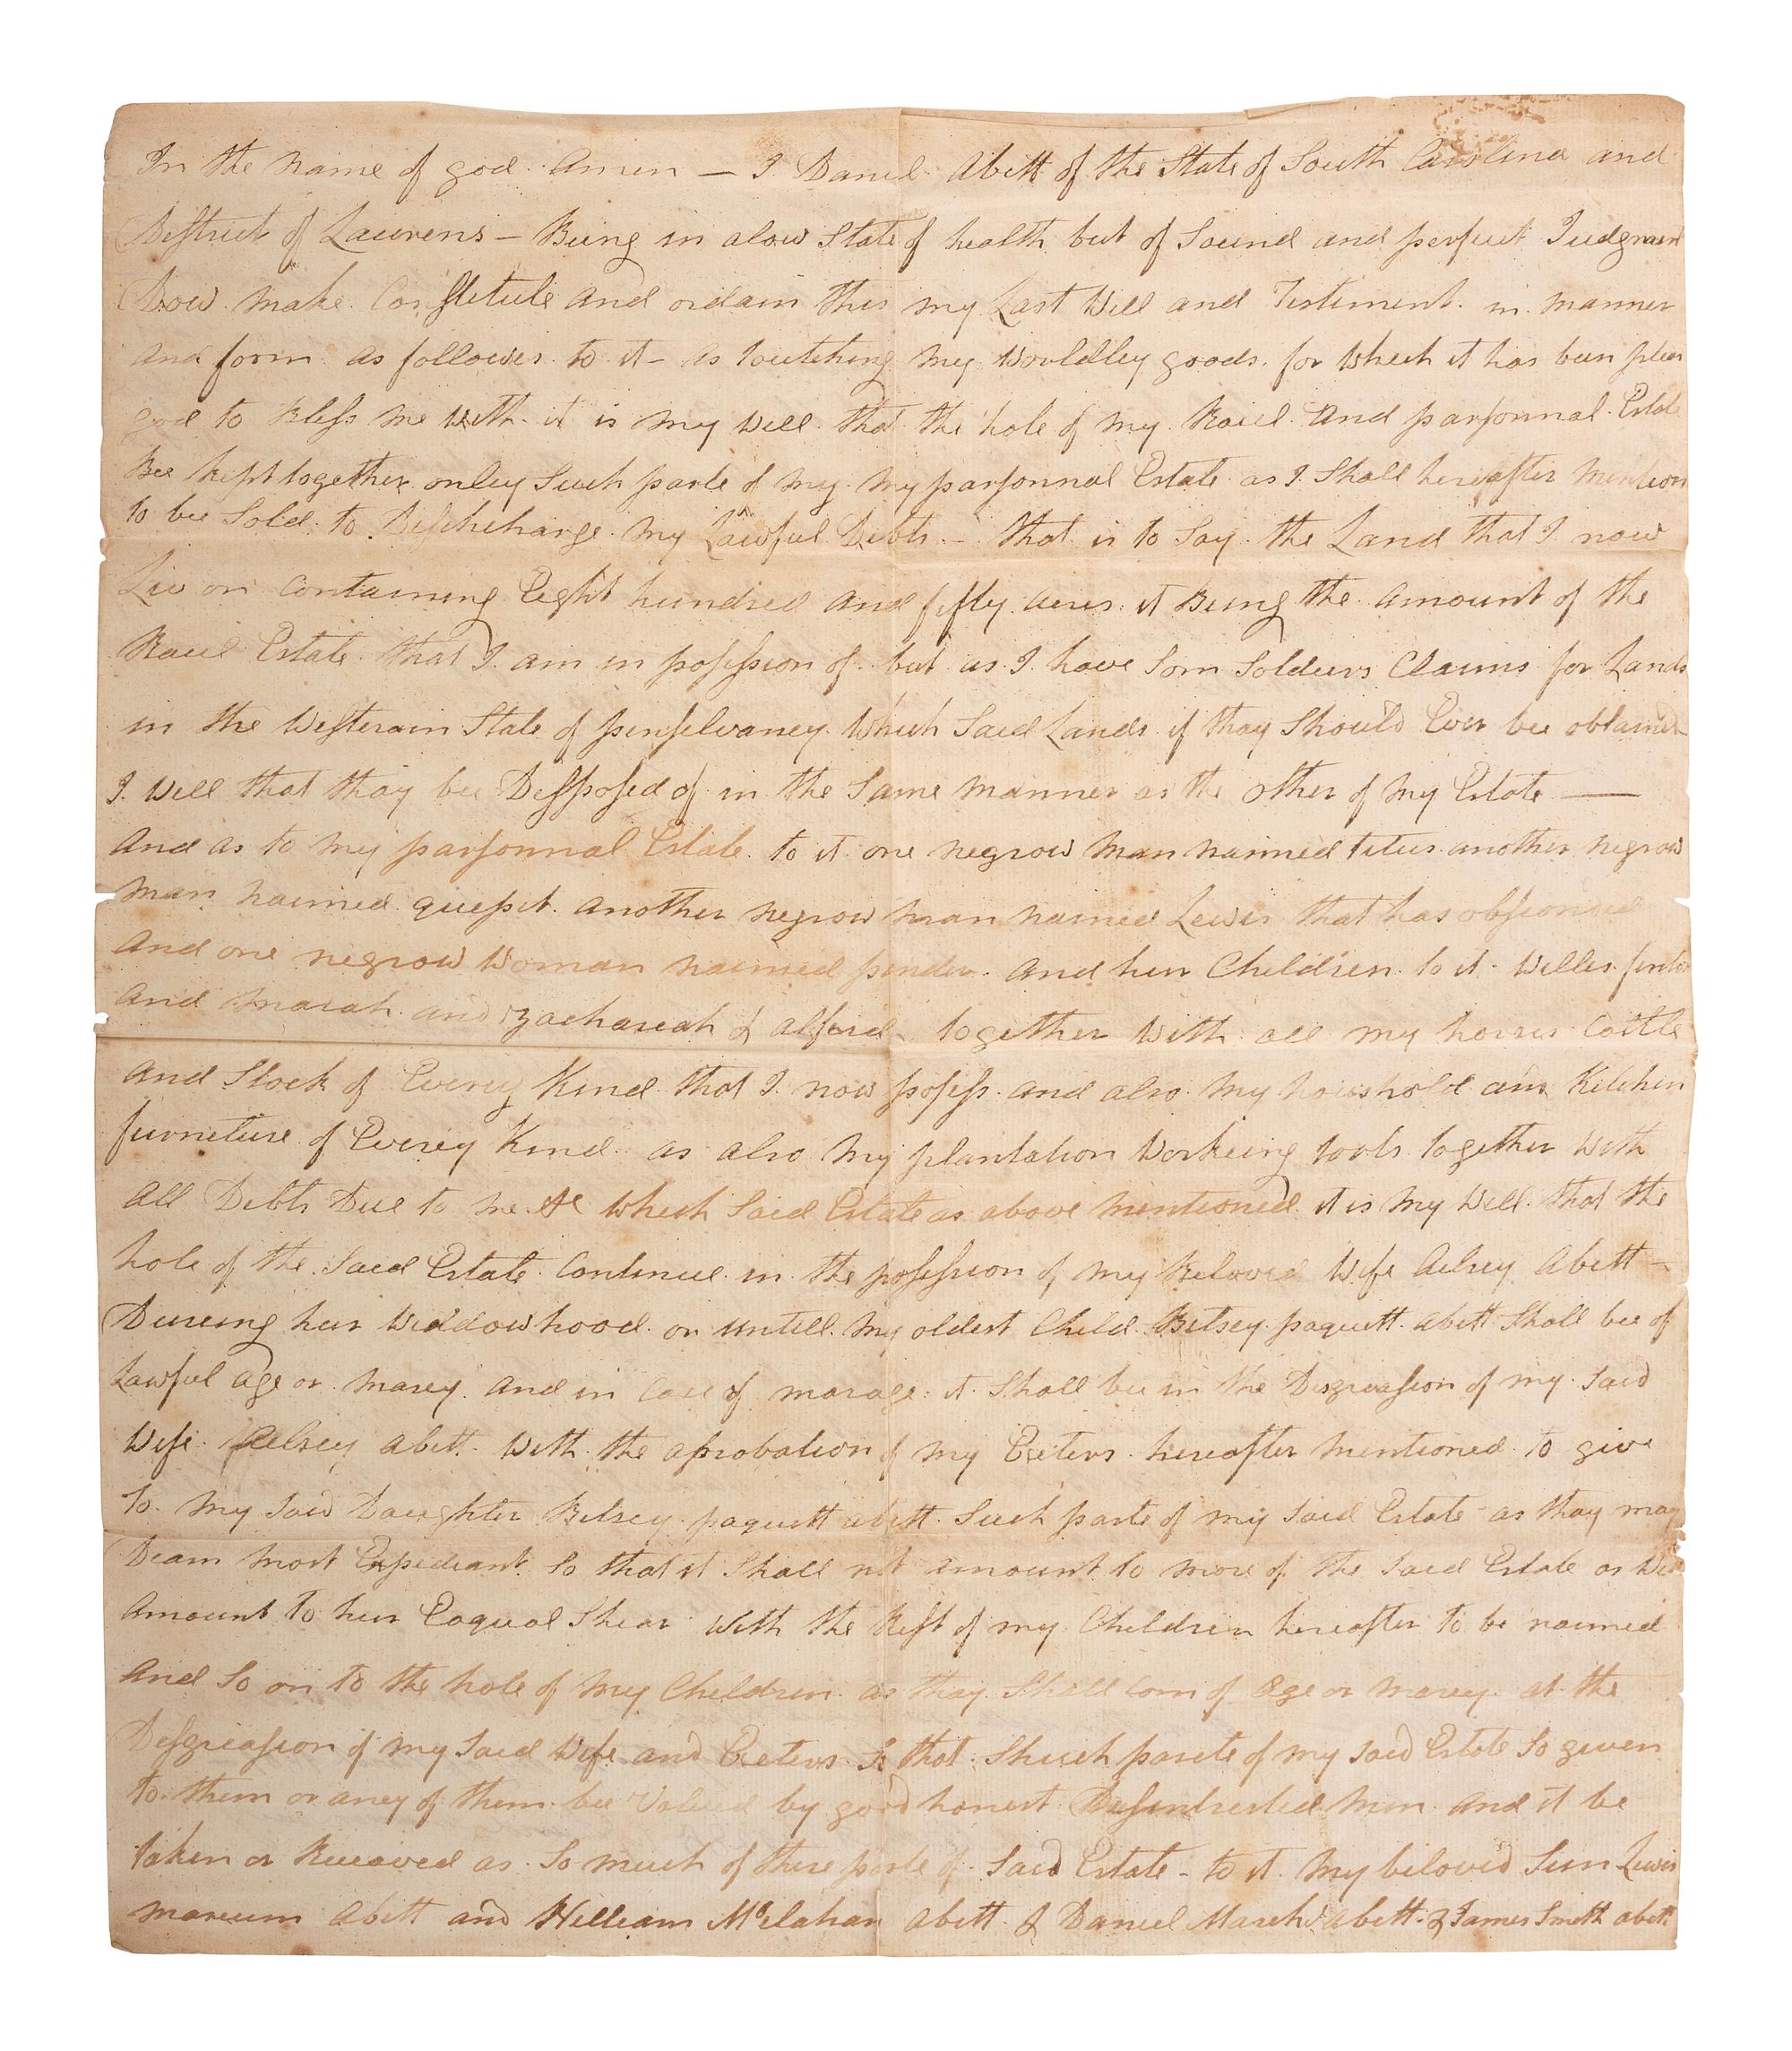 In the name of god Amen — I Daniel Abett of the State of South Carolina and
Destrict of Laurens — Being in alow State of health but of Sound and perfect Judgment
Dow make Constitute and ordain this my Last Will and Testiment in manner
and form as followes to it – as toutching my Wouldley goods for which it has been pleas
god to Bless me With it is my Will that the hole of my Raiel and parsonnal Estate
Bee kept together onley Such parte of my my parsonnal Estate as I Shall hereafter mention
to bee Sold to Dischcharge my Lawful Debts – that is to Say the Land that I now
Liv on Containing Eeght hundred and fifty acres it Being the amount of the
Raiel Estate that I am in possession of but as I have Som Soldiers Claims for Lands
in the Westerain State of pinselvaney Which Said Lands if thay Should Ever bee obtained
I Will that thay bee Desposed of in the Same manner as the other of my Estate —
And as to my parsonnal Estate to it one negrow man naimed titus another negrow
man naimed another negrow man naimed Lewis that has
And one negrow Woman naimed And her Children to it Willes
And Marah and zachareah & alford together With all my horses Cattle
And Stock of Everey Kind that I now posess and also my household and Kitchin
furneture of Everey Kind as also my plantation Workeing tools together With
All Debts Due to me &c Which Said Estate as above mentioned it is my Will that the
hole of the Said Estate Continue in the possession of my Beloved Wife Aelsey Abett –
Dureing her Widdowhood or untill my oldest Child Betsey paquett abett Shall bee of
Lawful age or marey and in Case of marage it Shall bee in the Desgreassion of my Said
Wife Aelsey abett With the aprobation of my Exeters hereafter mentioned to give
to my Said Daughter Betsey paquett abett Such parte of my Said Estate as thay may
Deam most Expedeant So that it Shall not amount to more of the Said Estate as Will
Amount to her Eaqual Shear With the Rest of my Children hereafter to be naimed
And So on to the hole of my Children as thay Shall Com of age or marey at the
Desgreassion of my Said Wife and Exeters So that Shuch parete of my Said Estate So given
to them or aney of them bee Valued by good honest Desentrested men and it be
taken or Receaved as So much of there parte of Said Estate – to it my beloved Sun Lewis
abett and William Mclahan abett & Daniel March abett & James Smith abett